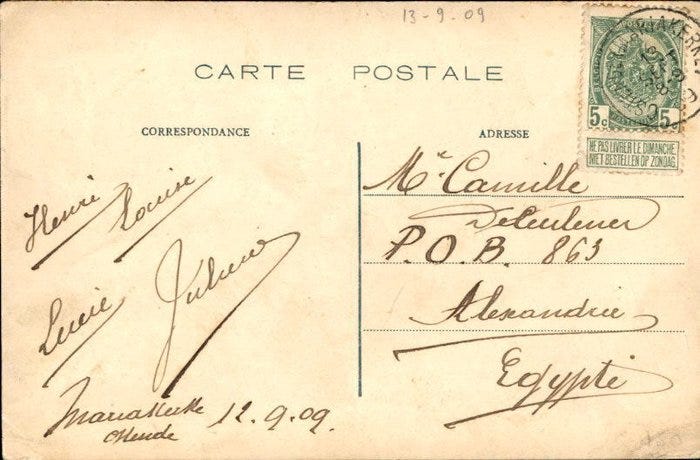 13-9.09
CARTE POSTALE
CORRESPONDANCE
ADRESSE
5c 5c
NE PAS LIVRER LE DIMANCHE
NIET BESTELLEN OP ZONDAG
Henri Louise
Lucie
Mariakerke
Ostende
12.9.09.
Mr Camille
P.O.B. 863
Alexandrie
Egypte